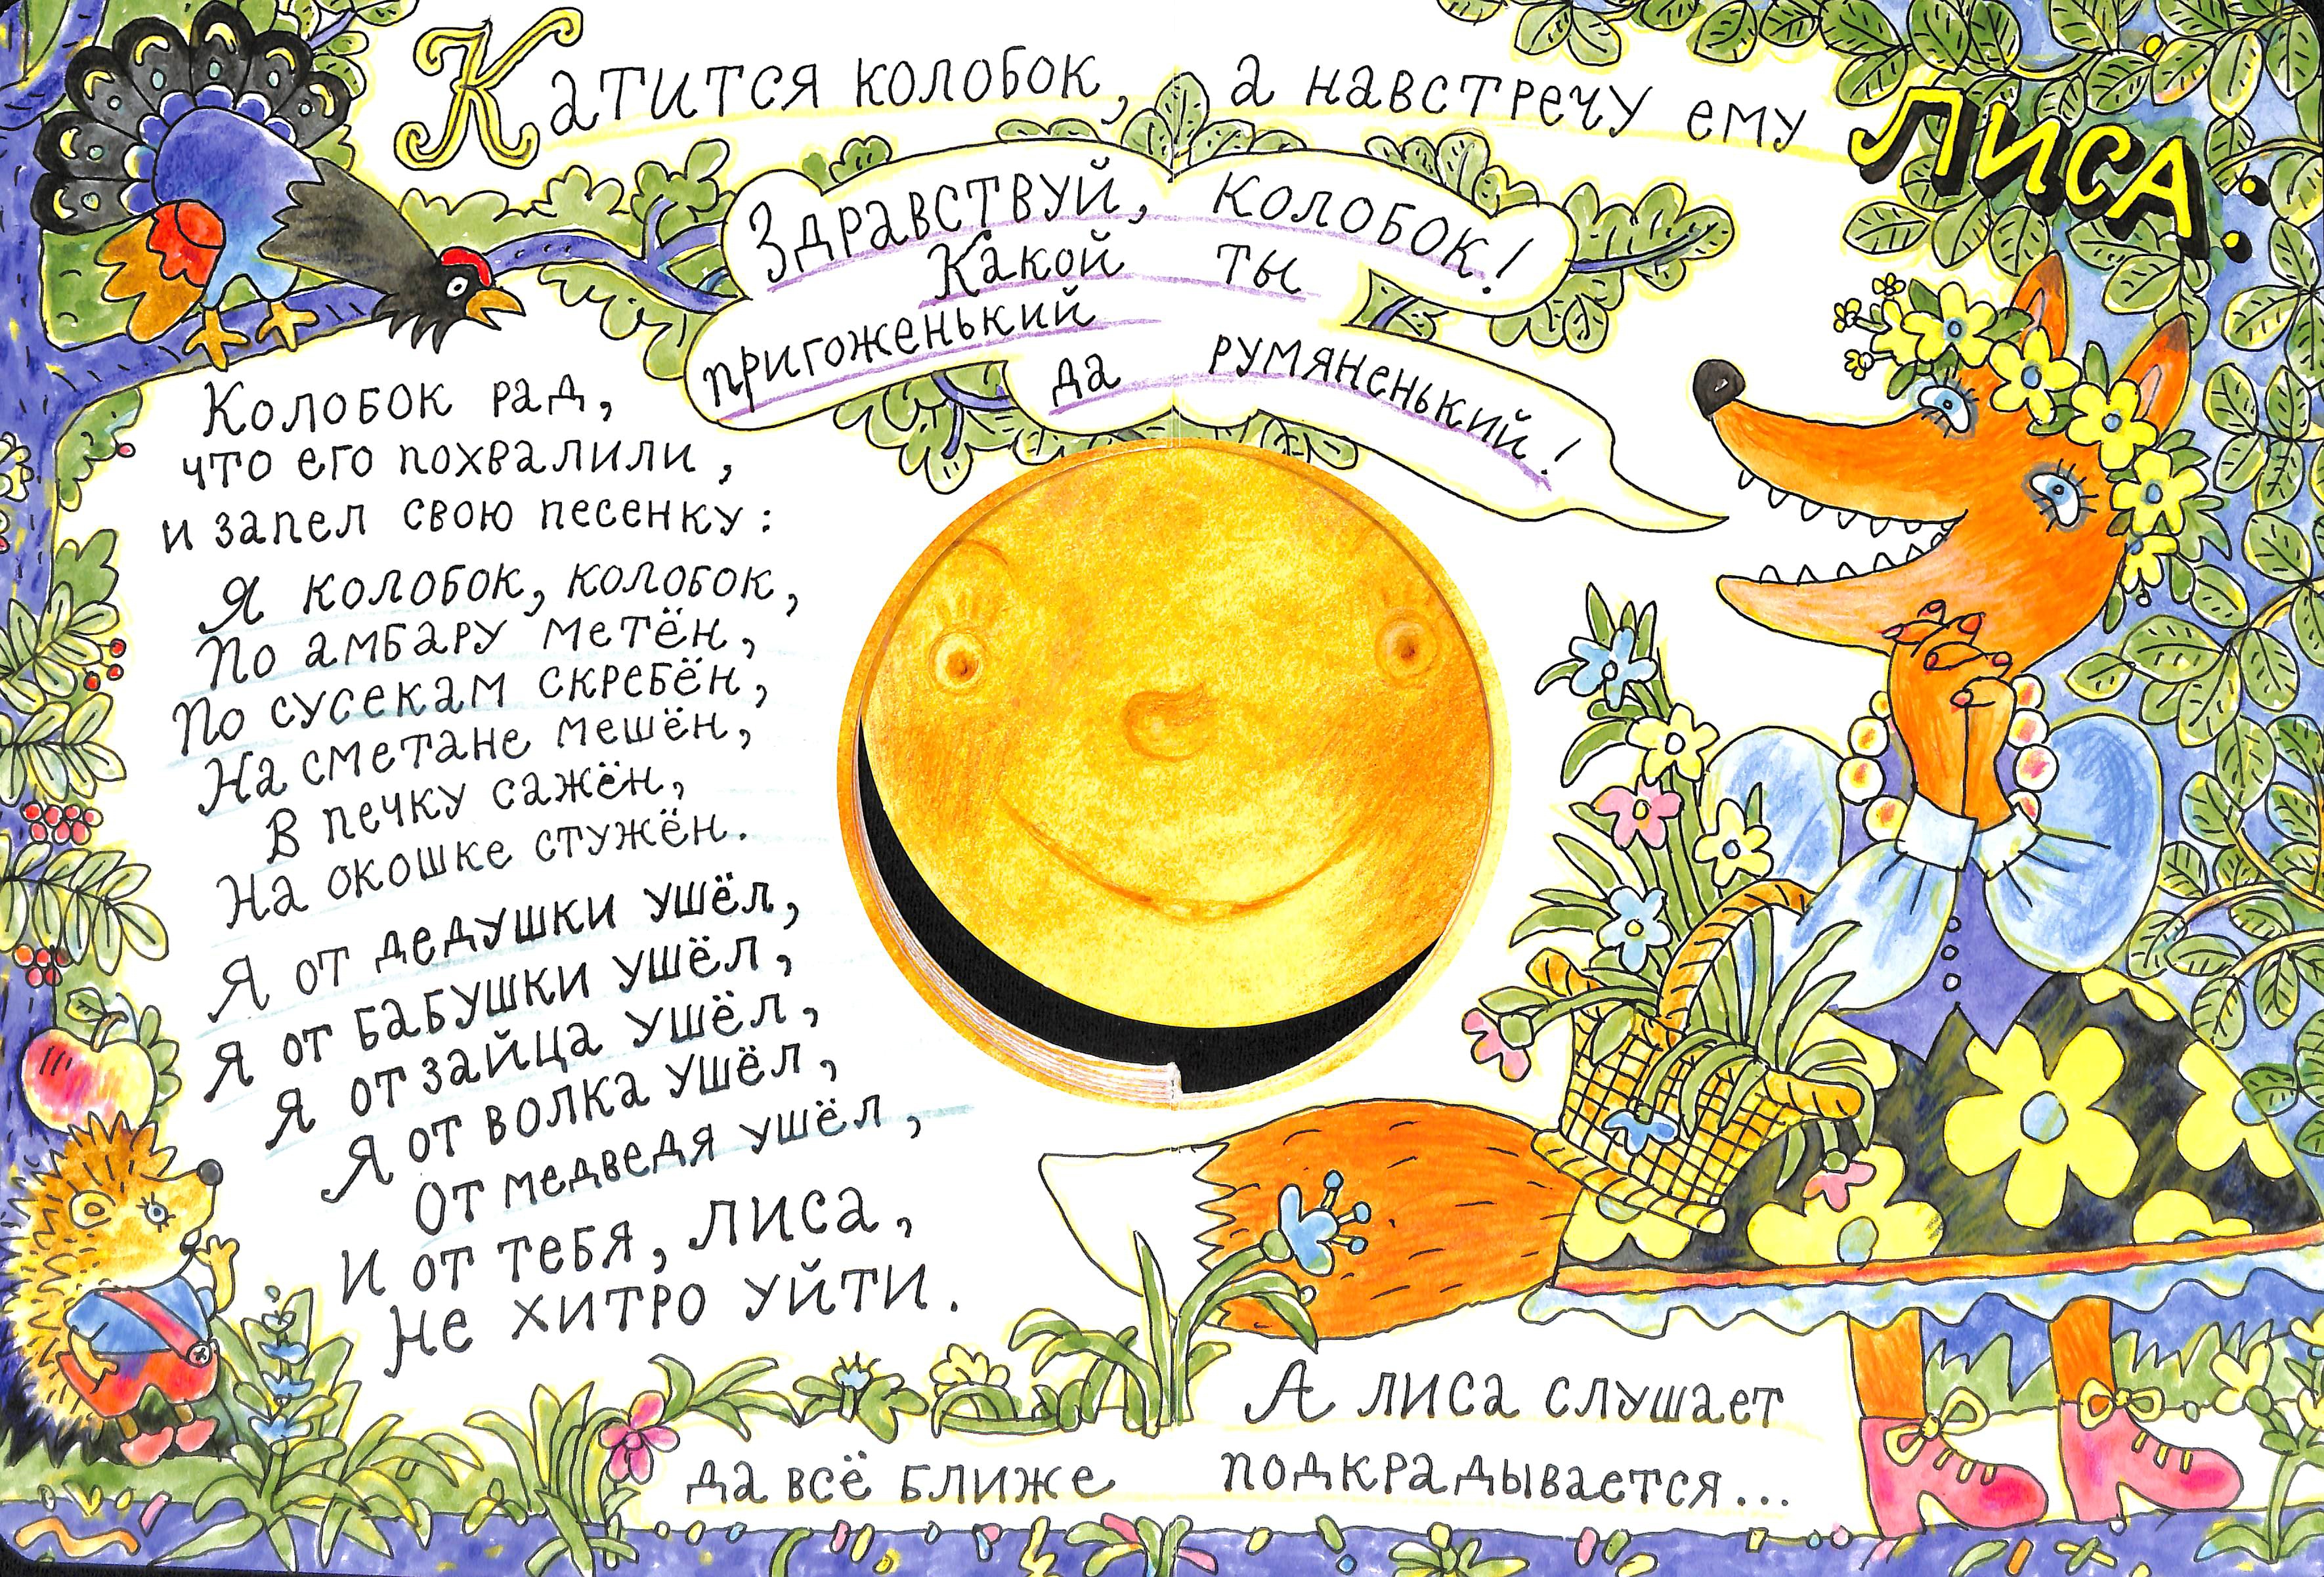 Катится колобок, а навстречу ему ЛИСА:
Здравствуй, колобок!
Какой ты
пригоженький
да румяненький!
Колобок рад,
что его похвалили,
и запел свою песенку:
Я колобок, колобок,
По амбару метён,
По сусекам скребён,
На сметане мешён,
В печку сажён,
На окошке стужён.
Я от дедушки ушёл,
Я от бабушки ушёл,
Я от зайца ушёл,
Я от волка ушёл,
От медведя ушёл,
И от тебя, лиса,
Не хитро уйти.
А лиса слушает
да всё ближе подкрадывается...